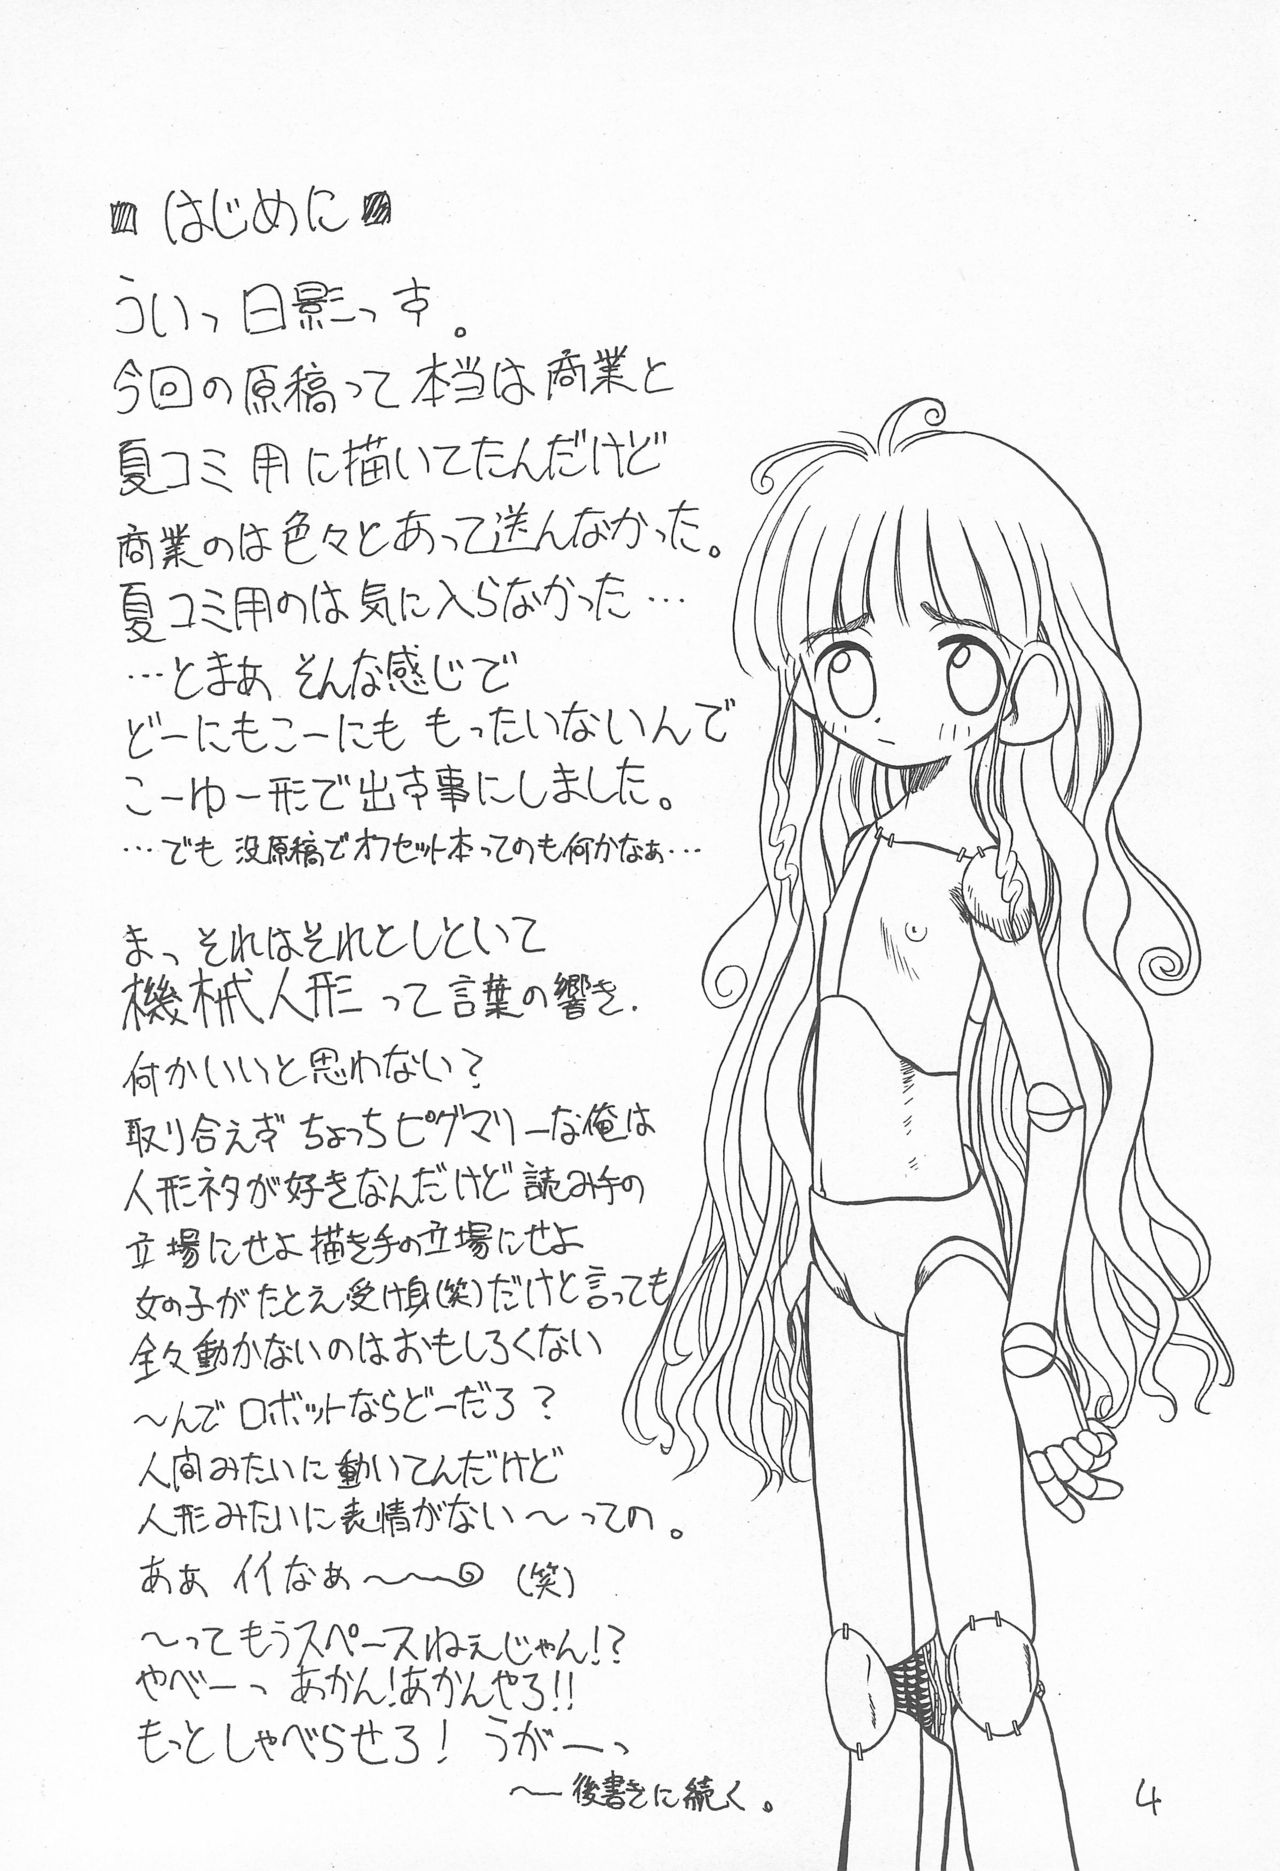 はじめに
ういっ日影っす。
今回の原稿って本当は商業と
夏コミ用に描いてたんだけど
商業のは色々とあって送んなかった。
夏コミ用のは気に入らなかった…
…とまぁ、そんな感じで
どーにもこーにももったいないんで
こーゆー形で出す事にしました。
…でも没原稿でオフセット本ってのも何かなぁ…
まっそれはそれとしといて
機械人形って言葉の響き、
何かいいと思わない？
取り合えずちょっちピグマリーな俺は
人形ネタが好きなんだけど読み手の
立場にせよ描き手の立場にせよ
女の子がたとえ受け身(笑)だけと言っても
全々動かないのはおもしろくない
～んでロボットならどーだろ？
人間みたいに動いてんだけど
人形みたいに表情がない～っての。
あぁイイなぁ～ (笑)
～ってもうスペースねぇじゃん!?
やべーっ あかん!あかんやろ!!
もっとしゃべらせろ! うがーっ
～後書きに続く。
4